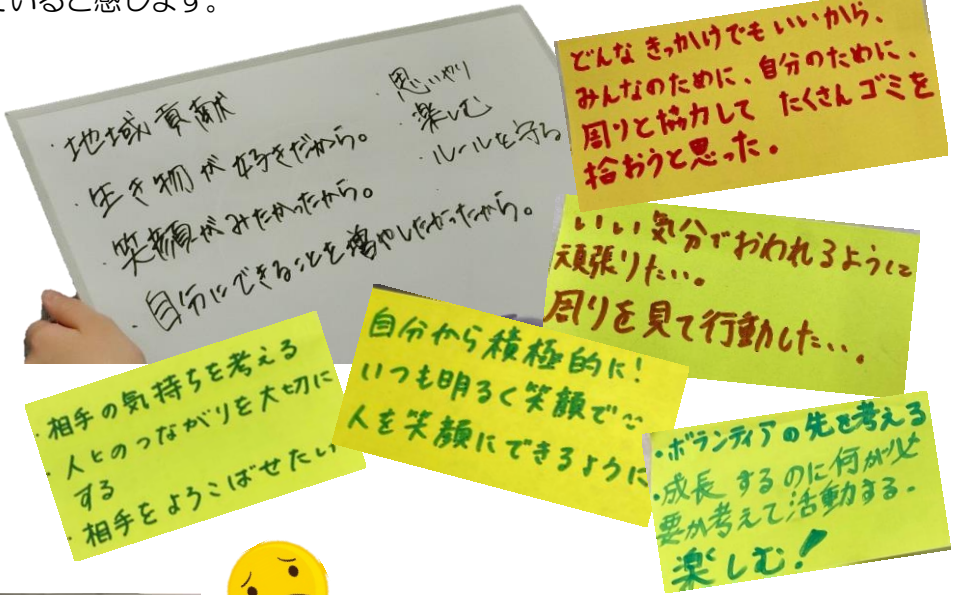 ていると感じます。
・地域貢献
・生き物が好きだから。
・笑顔がみたかったから。
・自分にできることを増やしたかったから。
・思いやり
・楽しむ
・ルールを守る
どんなきっかけでもいいから、
みんなのために、自分のために、
周りと協力して たくさんゴミを
拾おうと思った。
いい気分でおわれるように
頑張りたい。
周りを見て行動したい。
・相手の気持ちを考える
・人とのつながりを大切に
する
・相手をよろこばせたい
自分から積極的に!
いつも明るく笑顔で
人を笑顔にできるように
・ボランティアの先を考える
・成長するのに何が必
要か考えて活動する。
楽しむ!